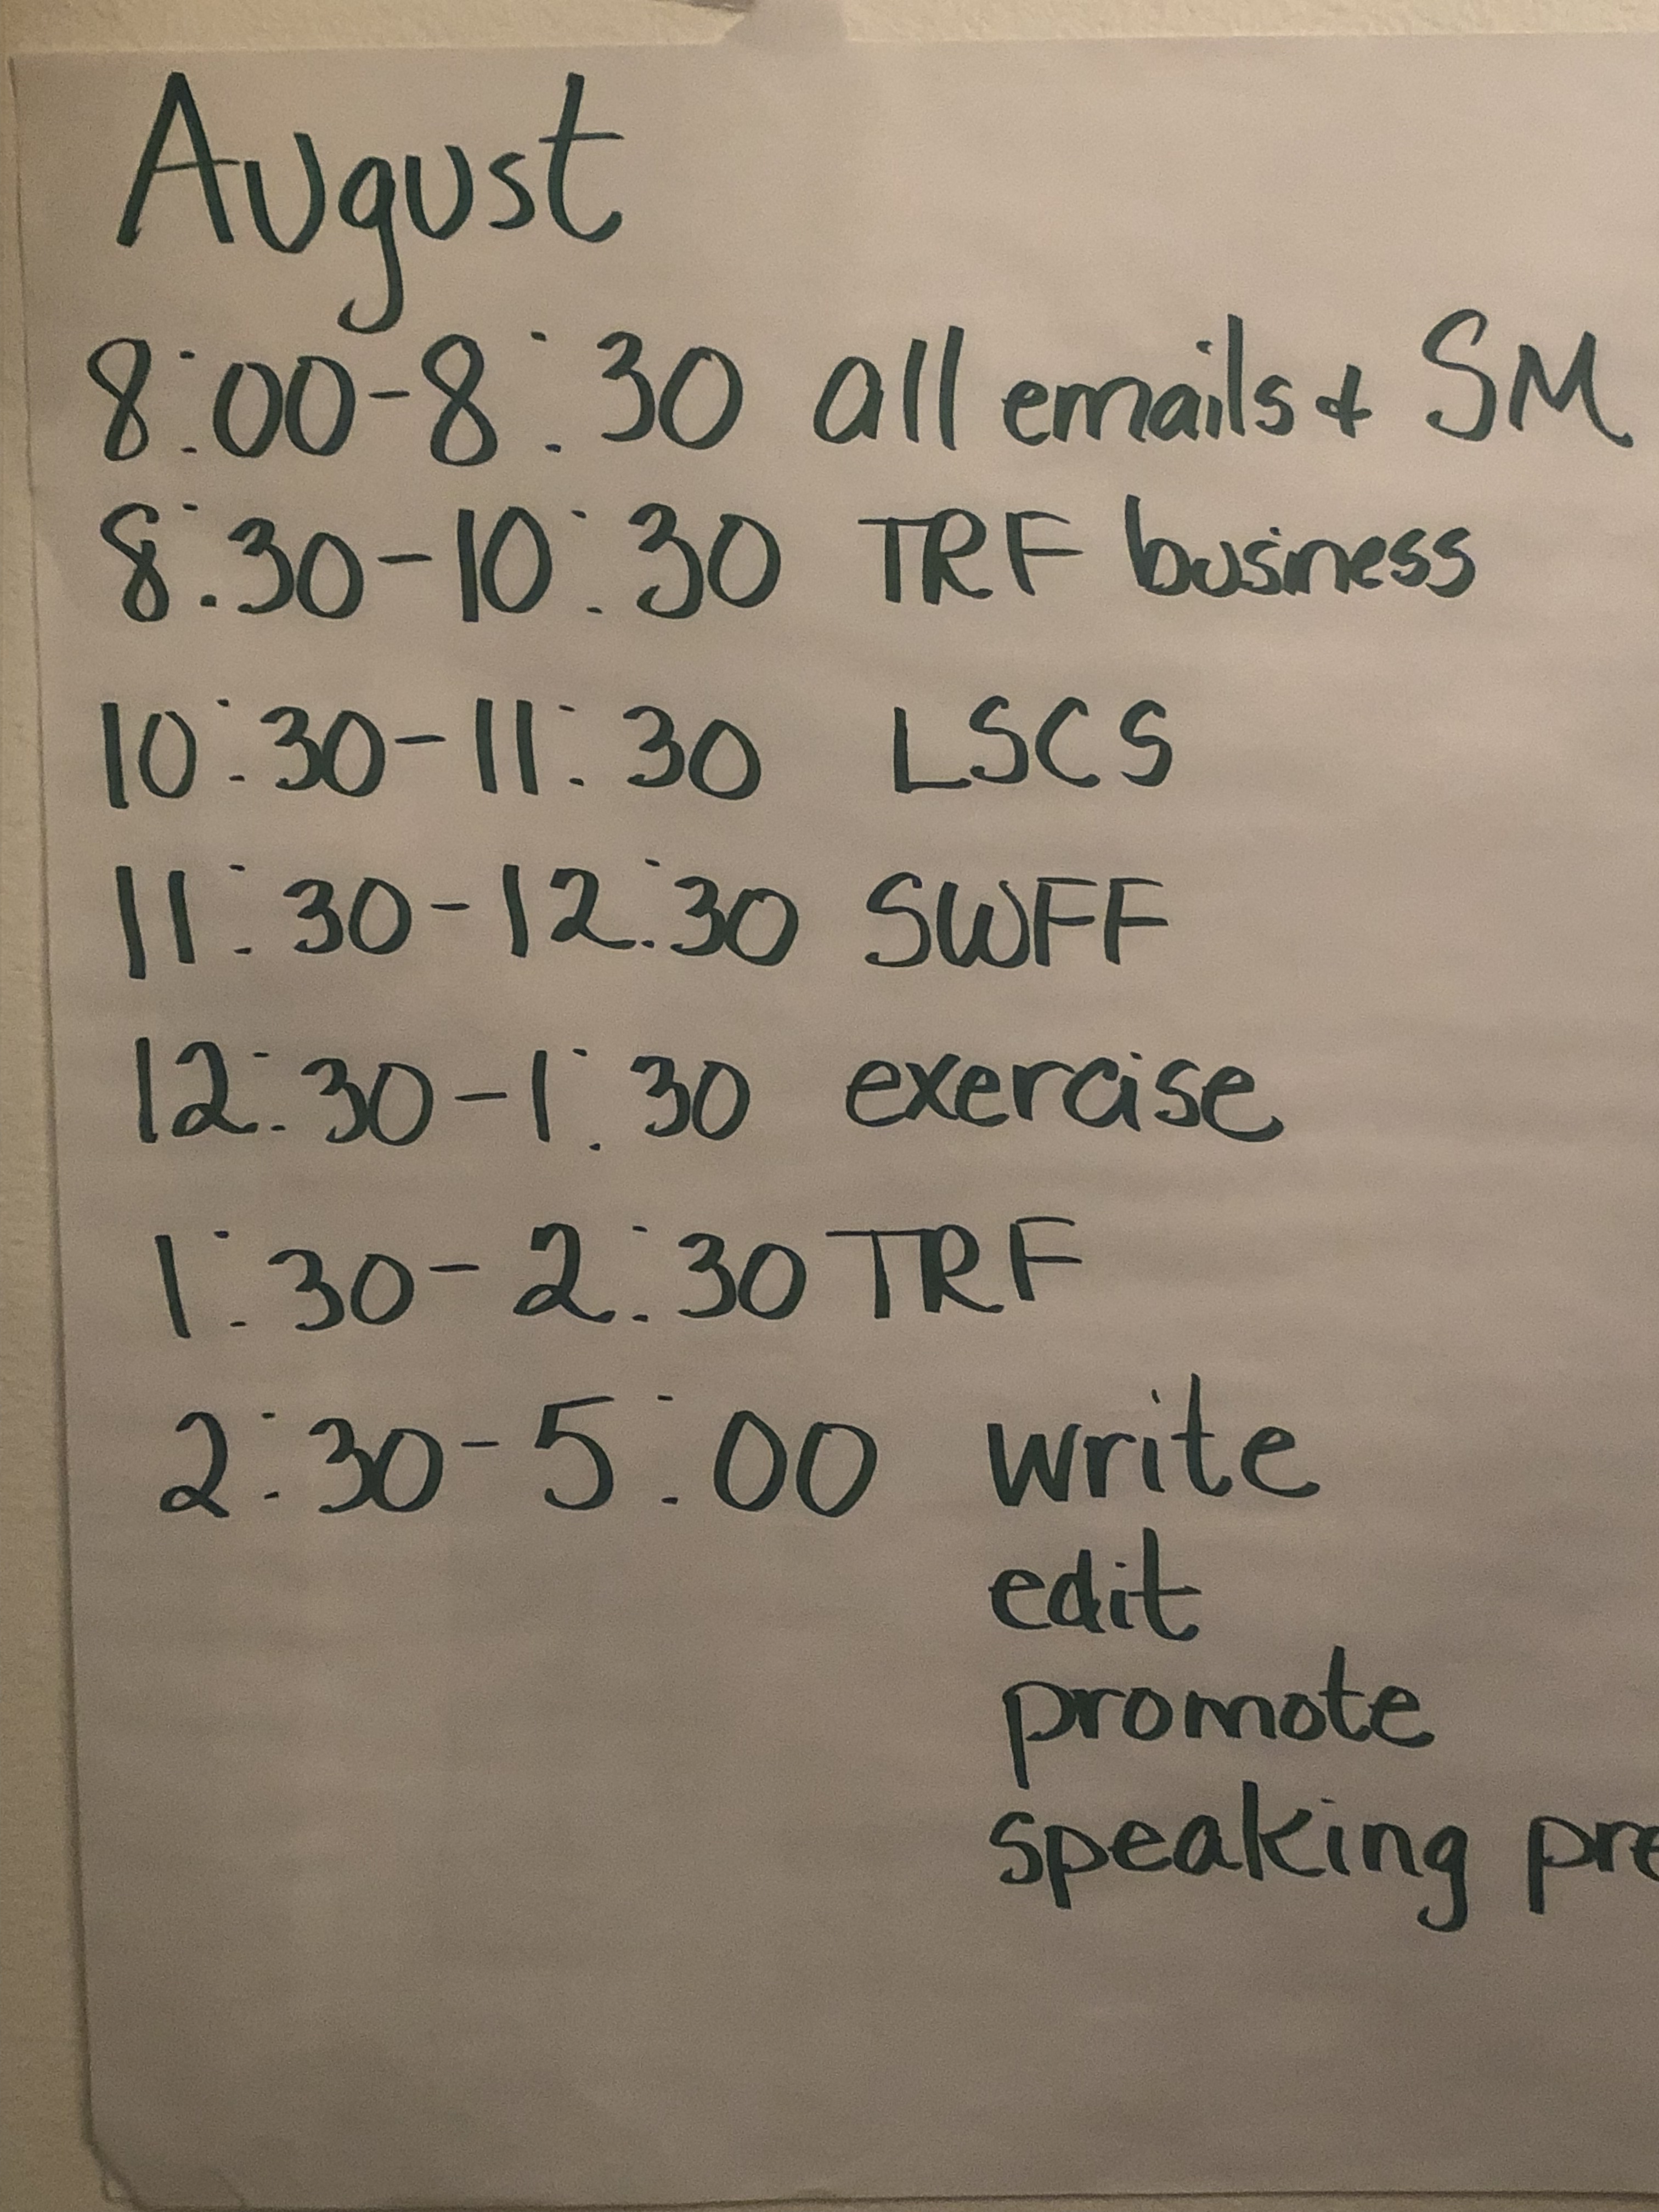 August
8:00-8:30 all emails + SM
8:30-10:30 TRF business
10:30-11:30 LSCS
11:30-12:30 SWFF
12:30-1:30 exercise
1:30-2:30 TRF
2:30-5:00 write
edit
promote
speaking pre